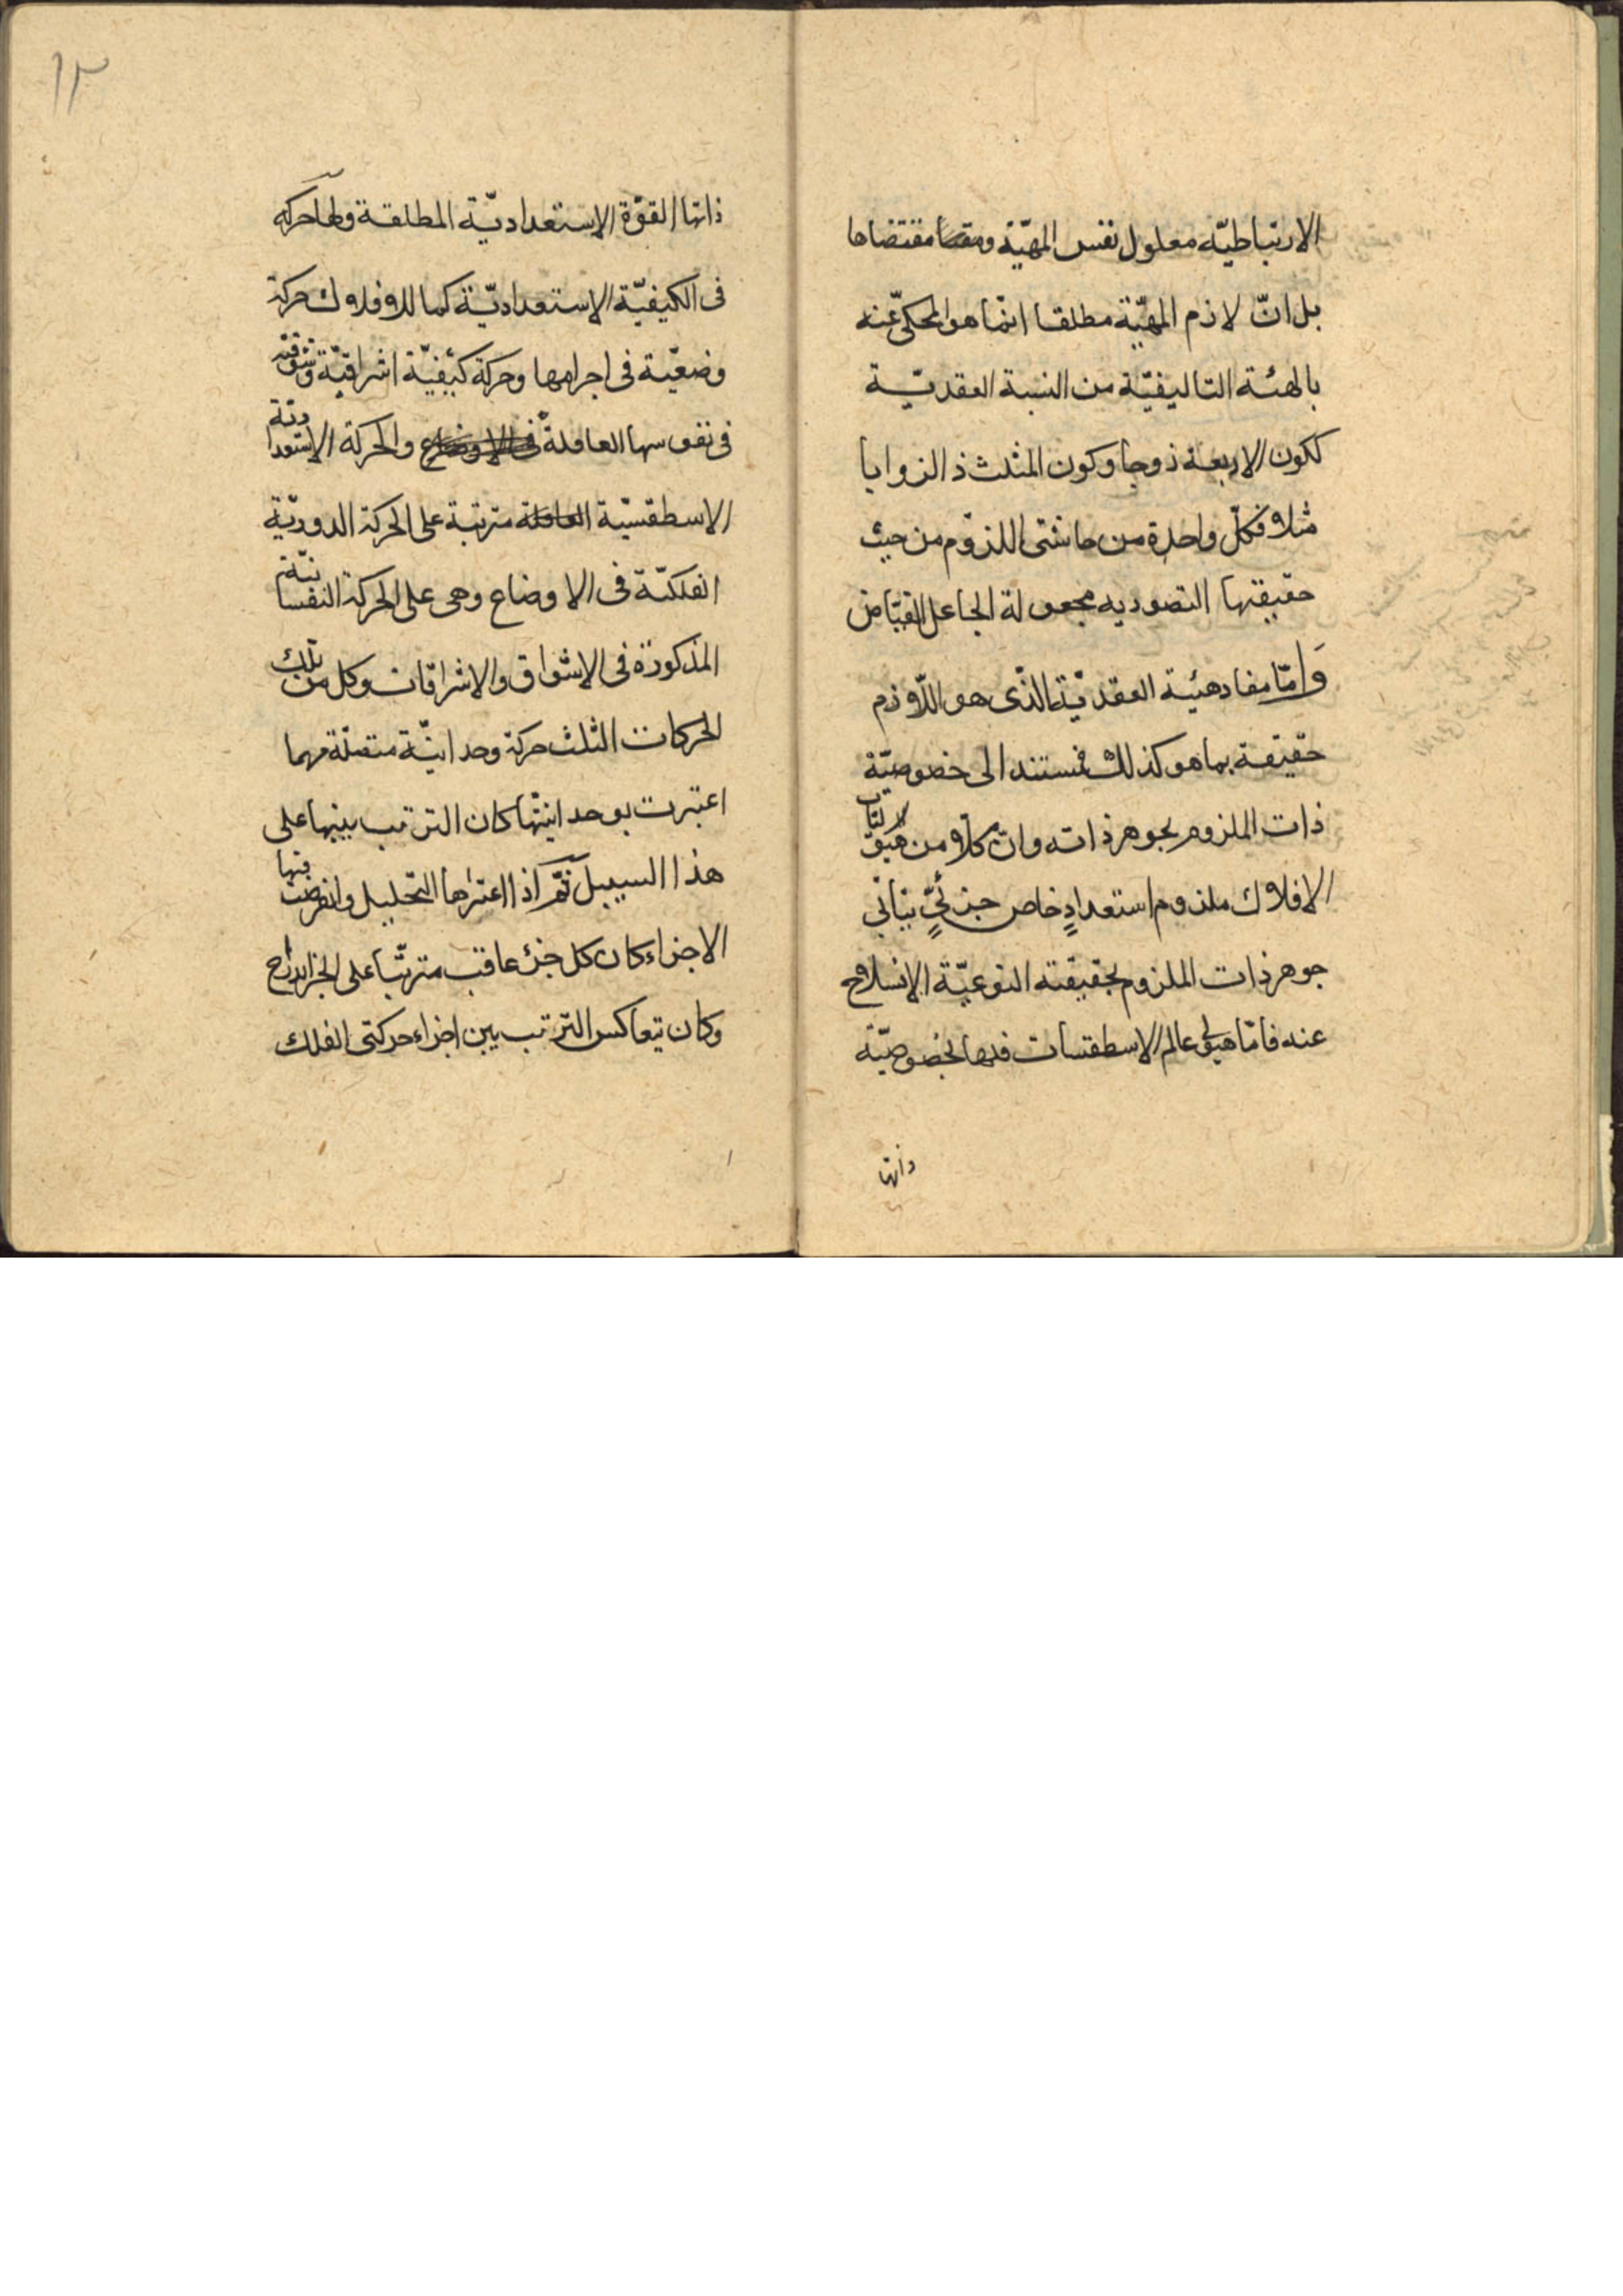 الارتباطيّه معلول نفس المهيّة ومقتضاها
بل انّ لازم المهيّة مطلقا انّما هو المحكىّ عنه
بالهئة التاليفيّة من النسبة العقديّة
ككون الاربعة زوجا وكون المثلث ذا الزوايا
مثلا فكلّ واحدة من حاشيتى اللزوم من حيث
حقيقتها التصوريه مجعولة الجاعل الفيّاض
وَامّا مفاد هيئة العقديّة الذى هو اللّازم
حقيقة بما هو كذلك فمستند الى خصوصيّة
ذات الملزوم بجوهر ذاته وانّ كلّا من هيوليات
الافلاك ملزوم استعدادٍ خاص جزئىٍّ يتأبّى
جوهر ذات الملزوم بحقيقته النوعيّة الانسلاخ
عنه فامّا هيولى عالم الاسطقسات فلها بخصوصيّة
ذاتها
١٣
ذاتها القوّة الاستعداديّة المطلقة ولها حركة
فى الكيفيّة الاستعداديّة كما للافلاك حركة
وضعيّة فى اجرامها وحركة كيفيّة اشراقيّة وشوقيّة
فى نفوسها العاقلة والحركة الاستعدادية
الاسطقسيّة مترتبة على الحركة الدوريّة
الفلكيّة فى الاوضاع وهى على الحركة النفسانيّة
المذكورة فى الاشواق والاشراقات وكل من تلك
الحركات الثلث حركة وحدانيّة متصلة مهما
اعتبرت بوحدانيّتها كان الترتب بينها على
هذا السبيل ثمّ اذا اعتراها التحليل وانفرضت فيها
الاجزاء كان كل جزء عاقب مترتّبا على الجزء البارح
وكان يتعاكس الترتب بين اجزاء حركتى الفلك